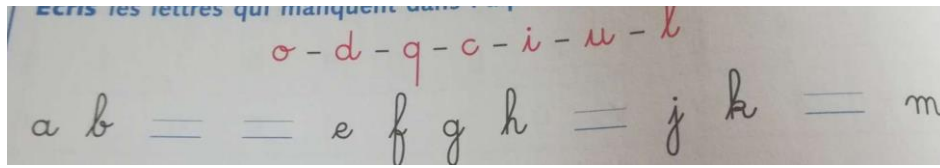 Ecris les lettres qui manquent dans
o - d - q - c - i - u - l
a b = = e f g h = j k = m